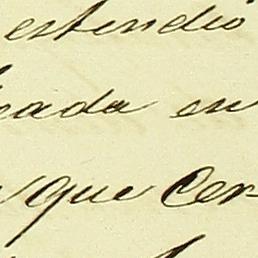 estendió
rada en
que Cer-